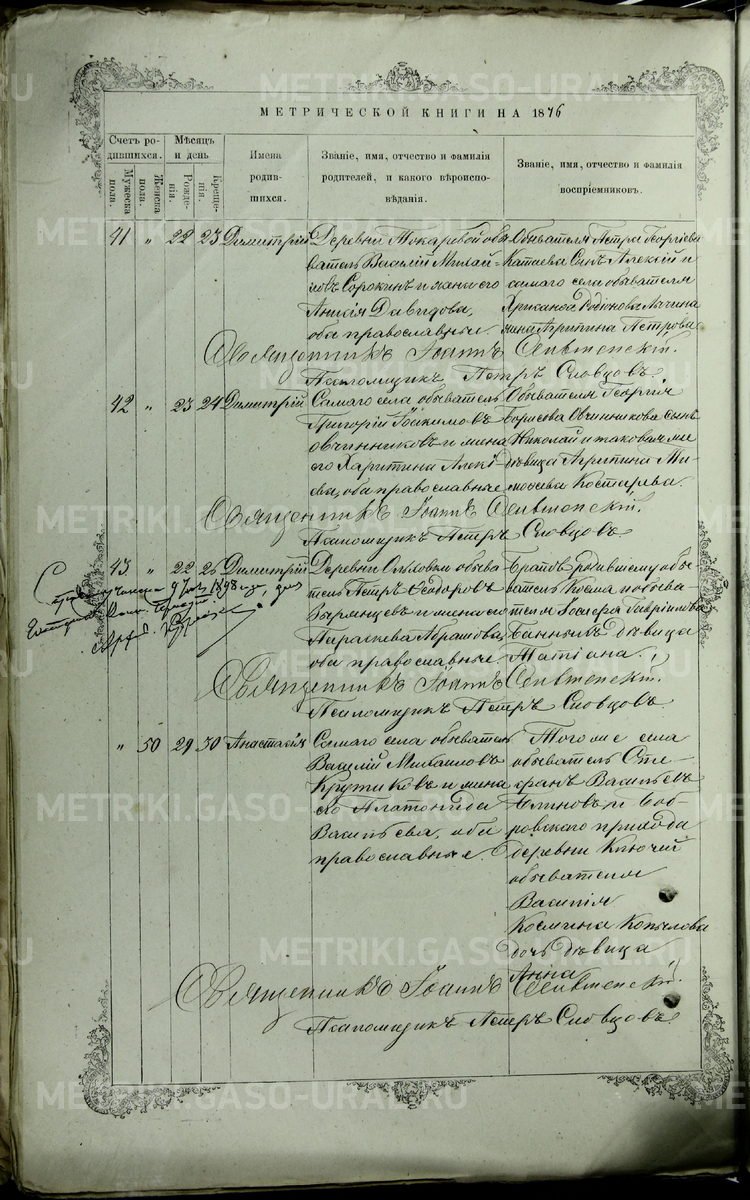 МЕТРИЧЕСКОЙ КНИГИ НА 1876
Счетъ ро-
дившихся.
Мужеска
пола.
Женска
пола.
Мѣсяцъ
и день
Рожде-
нія.
Креще-
нія.
Имена
родив-
шихся.
Званіе, имя, отчество и фамилія
родителей, и какого вѣроиспо-
вѣданія.
Званіе, имя, отчество и фамилія
воспріемниковъ.
41 " 22 23 Димитрій
Деревни Токаревой обы-
ватель Василій Михай-
ловъ Сорокинъ и жена его
Анисія Давидова,
оба православные.
Обывателя Петра Георгіева
Катаева сынъ Алексій и
самаго села обывателя
Родіонова
Агрипина Петрова
Священникъ Іоаннъ
Псаломщикъ Петръ Словцовъ
42 " 23 24 Димитрій
Самаго села обыватель
Григорій Іоакимовъ
Овчинниковъ и жена
его Харитина Алексі-
ева, оба православные
Обывателя Георгія
Борисова Овчинникова сынъ
Николай и таковая же
дѣвица Агрипина Ти-
моѳеева Костарева.
Священникъ Іоаннъ
Псаломщикъ Петръ Словцовъ
43 " 22 26 Димитрій
Деревни Ольховки обыва-
тель Петръ Ѳеодоровъ
Вырянцевъ и жена его
Параскева Абрамова,
оба православные.
Братъ родившему обы-
ватель Косма и обыва-
теля Гавріилова
Банныхъ дѣвица
Татіана.
Священникъ Іоаннъ
Псаломщикъ Петръ Словцовъ
" 50 29 30 Анастасія
Самаго села обыватель
Василій Михаиловъ
Крутиковъ и жена
его Платонида
Васильева, оба
православные.
Того же села
обыватель Сте-
фанъ Васильевъ
Блиновъ и Боб-
ровского прихода
деревни Ключей
обывателя
Василія
Космина Копылова
дочь дѣвица
Анна
Священникъ Іоаннъ
Псаломщикъ Петръ Словцовъ
METRIKI.GASO-URAL.RU